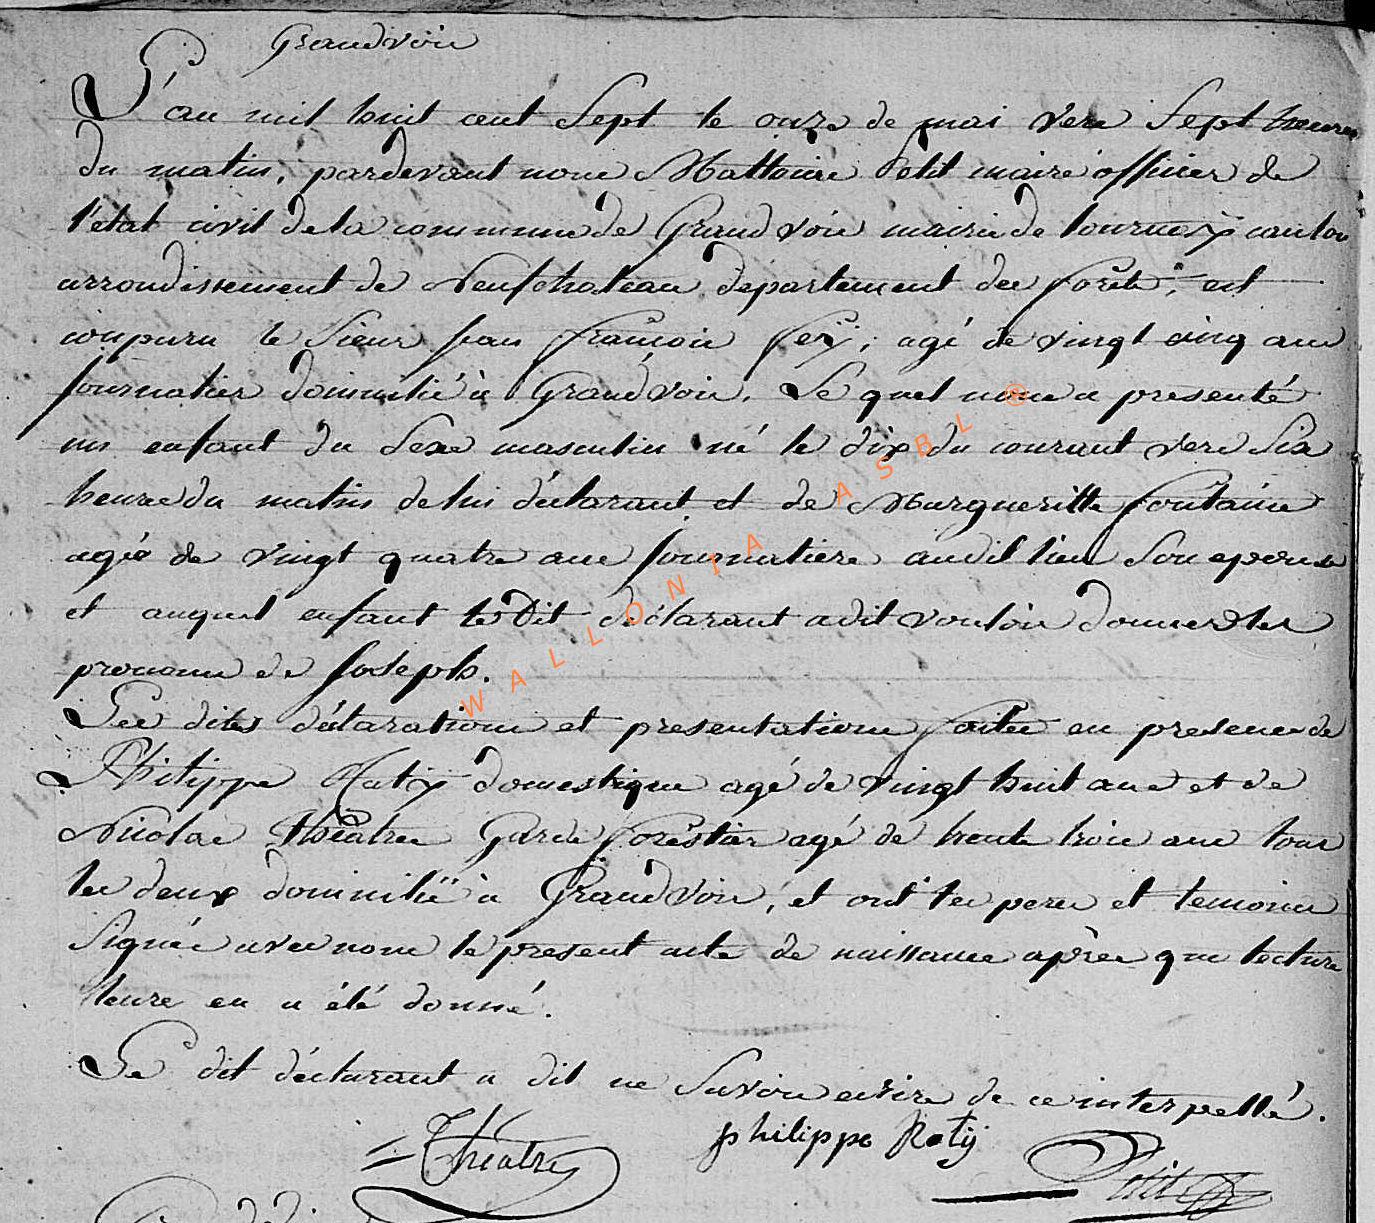 Grandvoir
L'an mil huit cent Sept le onze de mai vers Sept heures
du matin, pardevant nous Petit maire officier de
l'état civil de la commune de Grandvoir mairie de tournay canton
arrondissement de Neufchateau département des forêts, est
comparu le Sieur jean françois agé de vingt cinq ans
journalier domicilié à Grandvoir, Le quel nous a presenté
un enfant du Sexe masculin né le dix du courant vers Six
heures du matin de lui déclarant et de Margueritte fontaine
agée de vingt quatre ans journaliere audit lieu Son epouse
et auquel enfant le Dit déclarant a dit vouloir donner les
prenoms de Joseph.
Les dites déclarations et presentations faites en presence de
Philippe Raty domestique agé de vingt huit ans et de
Nicolas théâtre Garde forestier agé de trente trois ans tous
les deux domiciliés à Grandvoir, et ont les peres et temoins
Signés avec nous le present acte de naissance après que lecture
leure en a été donné.
Le dit déclarant a dit ne Savoir ecrire de ce interpellé.
Théatre philippe Raty Petit
WALLONIA ASBL ®